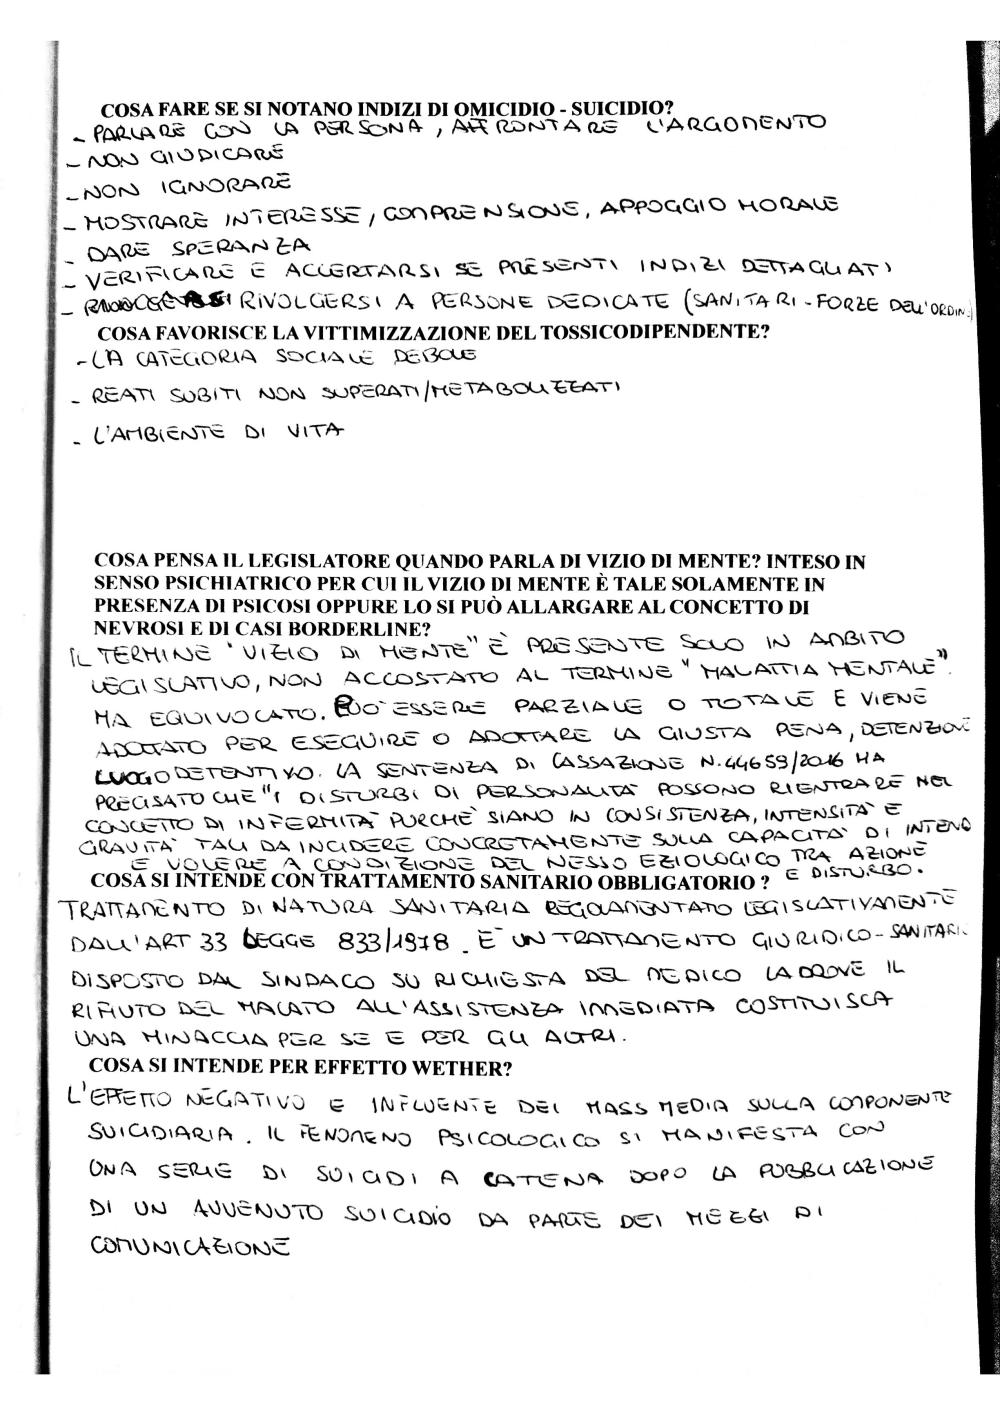 COSA FARE SE SI NOTANO INDIZI DI OMICIDIO - SUICIDIO?
- PARLARE CON LA PERSONA, AFFRONTARE L'ARGOMENTO
- NON GIUDICARE
- NON IGNORARE
- MOSTRARE INTERESSE, COMPRENSIONE, APPOGGIO MORALE
- DARE SPERANZA
- VERIFICARE E ACCERTARSI SE PRESENTI INDIZI DETTAGLIATI
- RIVOLGERSI A PERSONE DEDICATE (SANITARI - FORZE DELL'ORDINE)
COSA FAVORISCE LA VITTIMIZZAZIONE DEL TOSSICODIPENDENTE?
- LA CATEGORIA SOCIALE DEBOLE
- REATI SUBITI NON SUPERATI/METABOLIZZATI
- L'AMBIENTE DI VITA
COSA PENSA IL LEGISLATORE QUANDO PARLA DI VIZIO DI MENTE? INTESO IN
SENSO PSICHIATRICO PER CUI IL VIZIO DI MENTE È TALE SOLAMENTE IN
PRESENZA DI PSICOSI OPPURE LO SI PUÒ ALLARGARE AL CONCETTO DI
NEVROSI E DI CASI BORDERLINE?
IL TERMINE "VIZIO DI MENTE" È PRESENTE SOLO IN AMBITO
LEGISLATIVO, NON ACCOSTATO AL TERMINE "MALATTIA MENTALE".
MA EQUIVOCATO. PUO' ESSERE PARZIALE O TOTALE E VIENE
ADOTTATO PER ESEGUIRE O ADOTTARE LA GIUSTA PENA, DETENZIONE
LUOGO DETENTIVO. LA SENTENZA DI CASSAZIONE N.44659/2016 HA
PRECISATO CHE "I DISTURBI DI PERSONALITA' POSSONO RIENTRARE NEL
CONCETTO DI INFERMITA' PURCHE' SIANO IN CONSISTENZA, INTENSITA' E
GRAVITA' TALI DA INCIDERE CONCRETAMENTE SULLA CAPACITA' DI INTEND
E VOLERE A CONDIZIONE DEL NESSO EZIOLOGICO TRA AZIONE
E DISTURBO.
COSA SI INTENDE CON TRATTAMENTO SANITARIO OBBLIGATORIO ?
TRATTAMENTO DI NATURA SANITARIA REGOLAMENTATO LEGISLATIVAMENTE
DALL'ART 33 LEGGE 833/1978. E' UN TRATTAMENTO GIURIDICO-SANITARI
DISPOSTO DAL SINDACO SU RICHIESTA DEL MEDICO LADDOVE IL
RIFIUTO DEL MALATO ALL'ASSISTENZA IMMEDIATA COSTITUISCA
UNA MINACCIA PER SE E PER GLI ALTRI.
COSA SI INTENDE PER EFFETTO WETHER?
L'EFFETTO NEGATIVO E INFLUENTE DEI MASS MEDIA SULLA COMPONENTE
SUICIDIARIA. IL FENOMENO PSICOLOGICO SI MANIFESTA CON
UNA SERIE DI SUICIDI A CATENA DOPO LA PUBBLICAZIONE
DI UN AVVENUTO SUICIDIO DA PARTE DEI MEZZI DI
COMUNICAZIONE